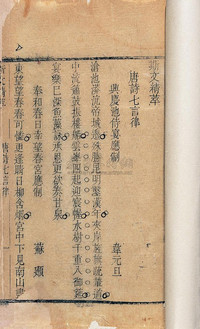 文精萃
唐詩七言律
興慶池侍宴應制 韋元旦
滄池漭沆帝城邊殊勝昆明鑿漢年夾岸旌旗疏輦道
中流簫鼓振樓船雲峰四起迎宸幄水樹千重入御筵
宴樂已深魚藻詠承恩更欲奏甘泉
奉和春日幸望春宮應制 蘇頲
東望望春春可憐更逢晴日柳含煙宮中下見南山盡